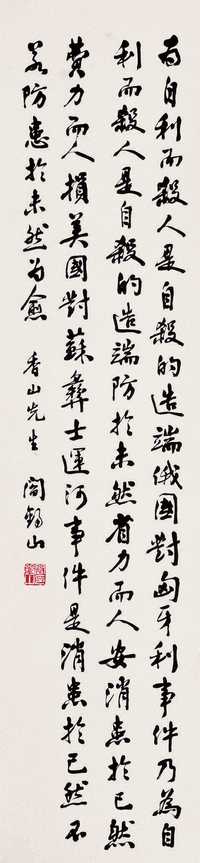 為自利而殺人是自殺的造端俄國對匈牙利事件乃為自
利而殺人是自殺的造端防於未然省力而人安消患於已然
費力而人損美國對蘇彝士運河事件是消患於已然不
若防患於未然為愈
香山先生 閻錫山